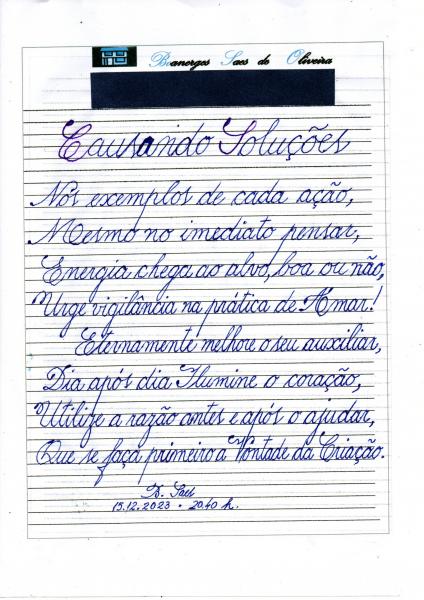 Boanerges Saes de Oliveira
Causando Soluções
Nos exemplos de cada ação,
Mesmo no imediato pensar,
Energia chega ao alvo, boa ou não,
Urge vigilância na prática de Amar!
Eternamente melhore o seu auxiliar,
Dia após dia Ilumine o coração,
Utilize a razão antes e após o ajudar,
Que se faça primeiro a Vontade da Criação.
B. Saes
15.12.2023 • 20.40 h.